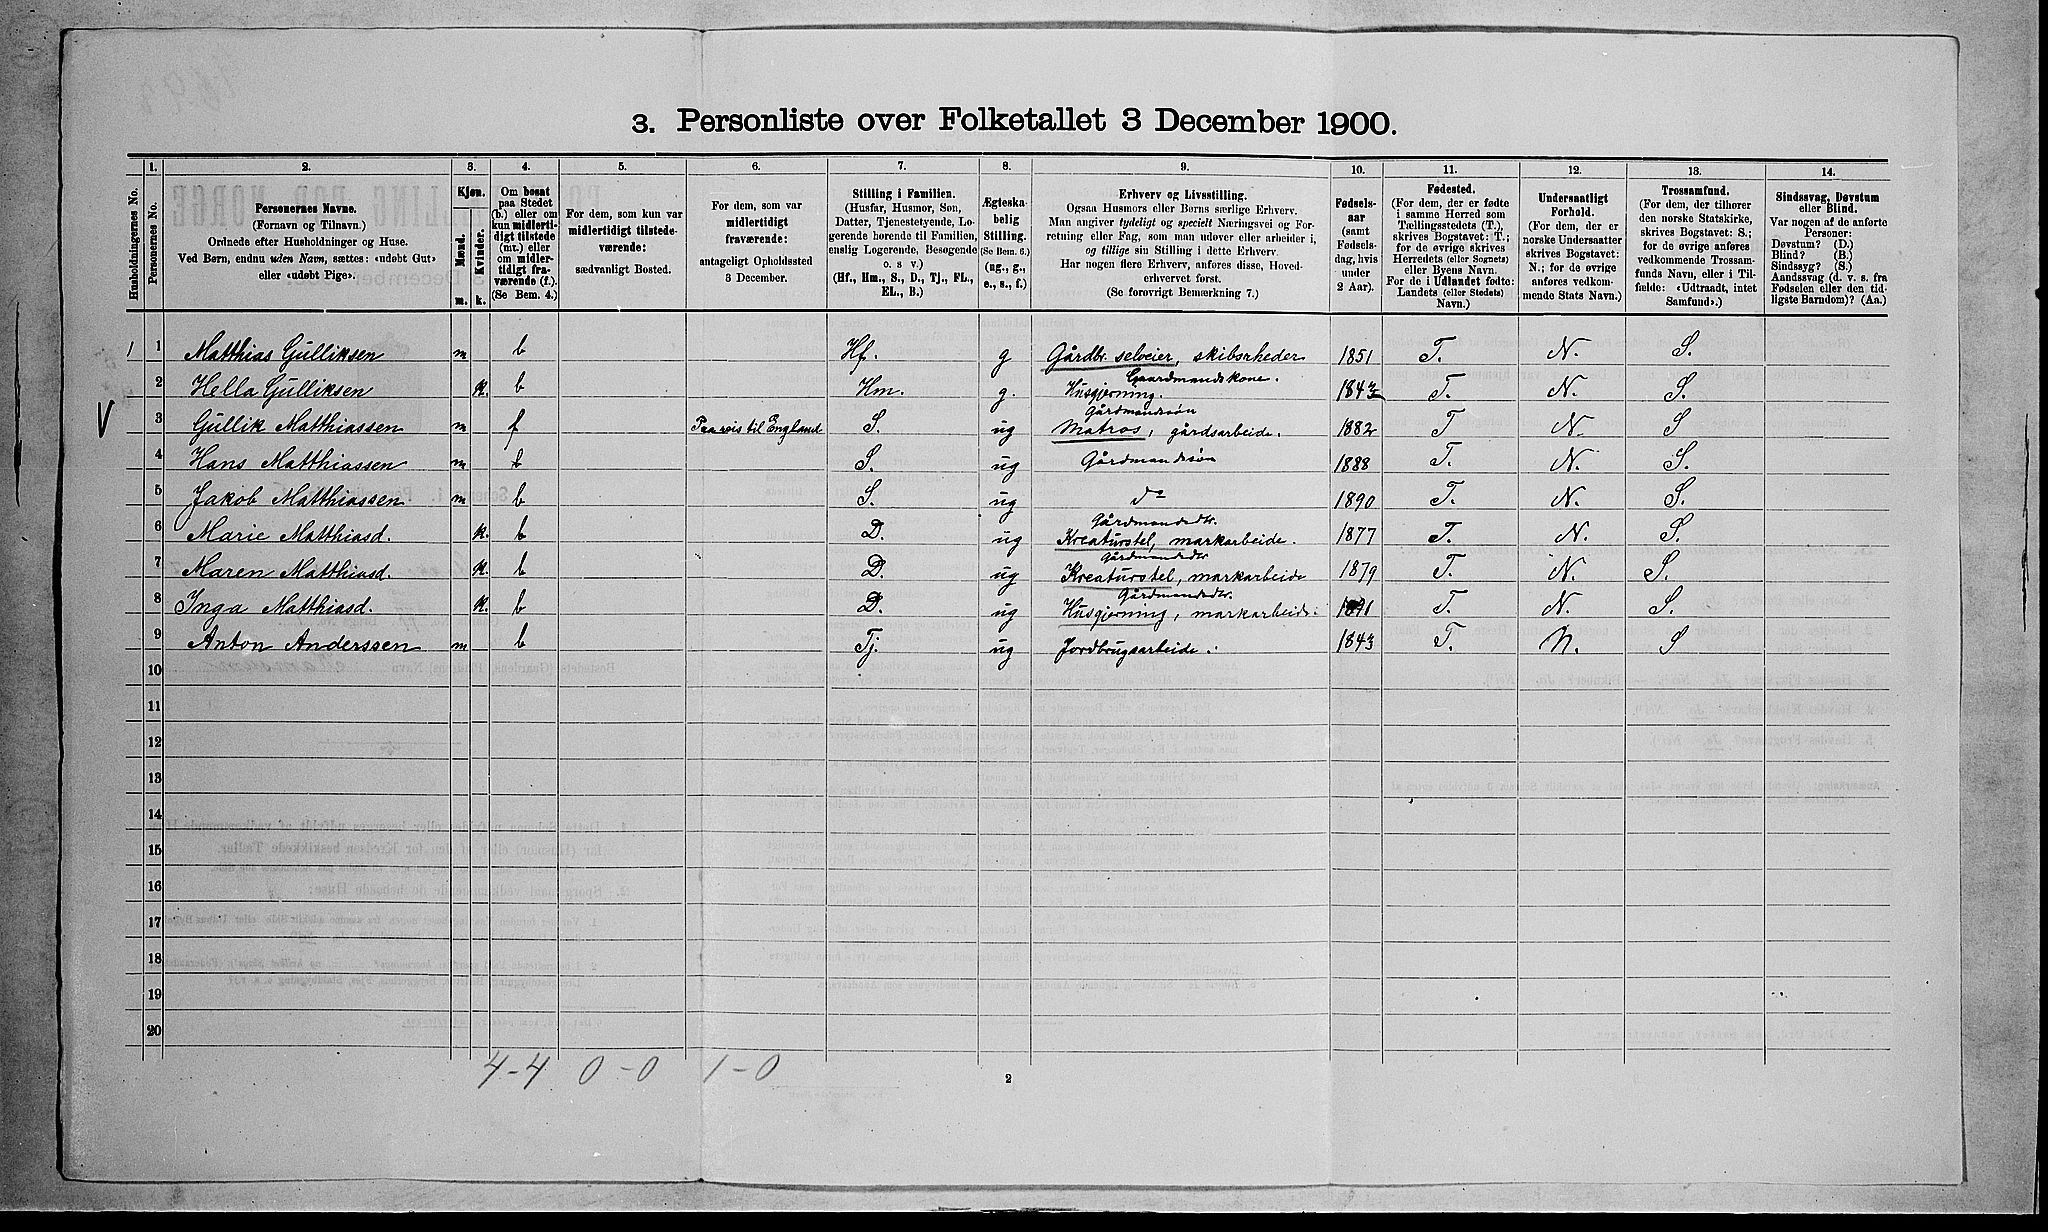 3. Personliste over Folketallet 3 December 1900.
1. 2. 3. 4. 5. 6. 7. 8. 9. 10. 11. 12. 13. 14.
Husholdningernes No.
Personernes No.
Personernes Navne.
(Fornavn og Tilnavn.)
Ordnede efter Husholdninger og Huse.
Ved Børn, endnu uden Navn, sættes: «udøbt Gut»
eller «udøbt Pige».
Kjøn.
Mænd.
Kvinder.
m. k.
Om bosat
paa Stedet
(b.) eller om
kun midler-
tidigt tilstede
(mt.) eller
om midler-
tidigt fra-
værende (f.).
(Se Bem. 4.)
For dem, som kun var
midlertidigt tilstede-
værende:
sædvanligt Bosted.
For dem, som var
midlertidigt
fraværende:
antageligt Opholdssted
3 December.
Stilling i Familien.
(Husfar, Husmor, Søn,
Datter, Tjenestetyende, Lo-
gerende hørende til Familien,
enslig Logerende, Besøgende
o. s. v.)
(Hf., Hm., S., D., Tj., FL.,
EL., B.)
Ægteska-
belig
Stilling.
(Se Bem. 6.)
(ug., g.,
e., s., f.)
Erhverv og Livsstilling.
Ogsaa Husmors eller Børns særlige Erhverv.
Man angiver tydeligt og specielt Næringsvei og For-
retning eller Fag, som man udøver eller arbeider i,
og tillige sin Stilling i dette Erhverv.
Har nogen flere Erhverv, anføres disse, Hoved-
erhvervet først.
(Se forøvrigt Bemærkning 7.)
Fødsels-
aar
(samt
Fødsels-
dag, hvis
under
2 Aar).
Fødested.
(For dem, der er fødte
i samme Herred som
Tællingsstedets (T.),
skrives Bogstavet: T.;
for de øvrige skrives
Herredets (eller Sognets)
eller Byens Navn.
For de i Udlandet fødte:
Landets (eller Stedets)
Navn.)
Undersaatligt
Forhold.
(For dem, der er
norske Undersaatter
skrives Bogstavet:
N.; for de øvrige
anføres vedkom-
mende Stats Navn.)
Trossamfund.
(For dem, der tilhører
den norske Statskirke,
skrives Bogstavet: S.;
for de øvrige anføres
vedkommende Trossam-
funds Navn, eller i Til-
fælde: «Udtraadt, intet
Samfund».)
Sindssvag, Døvstum
eller Blind.
Var nogen af de anførte
Personer:
Døvstum? (D.)
Blind? (B.)
Sindssyg? (S.)
Aandssvag (d. v. s. fra
Fødselen eller den tid-
ligste Barndom)? (Aa.)
1 1 Matthias Gulliksen m b Hf. g Gårdbr. selveier, skibsrheder 1851 T. N. S.
Gaardmandskone.
2 Hella Gulliksen k. b Hm. g. Husgjerning. T. N. S.
V
Gårdmandssøn
3 Gullik Matthiassen m f Paa reis til England S. ug Matros, gårdsarbeide. 1882 T N. S
4 Hans Matthiassen m b S. ug Gårdmandssøn 1888 T. N. S.
5 Jakob Matthiassen m b S. ug do 1890 T. N. S.
Gårdmandsdtr.
6 Marie Matthiasd. k. b D. ug Kreaturstel, markarbeide. 1877 T. N. S.
Gårdmandsdtr
7 Maren Matthiasd. k. b D. ug Kreaturstel, markarbeide 1879 T. N. S.
Gårdmandsdtr.
8 Inga Matthiasd. k. b D. ug Husgjerning, markarbeide. T. N. S.
9 Anton Anderssen m b Tj. ug Jordbrugsarbeide. 1843 T. N. S
10
11
12
13
14
15
16
17
18
19
20
4-4 0-0 1-0
2